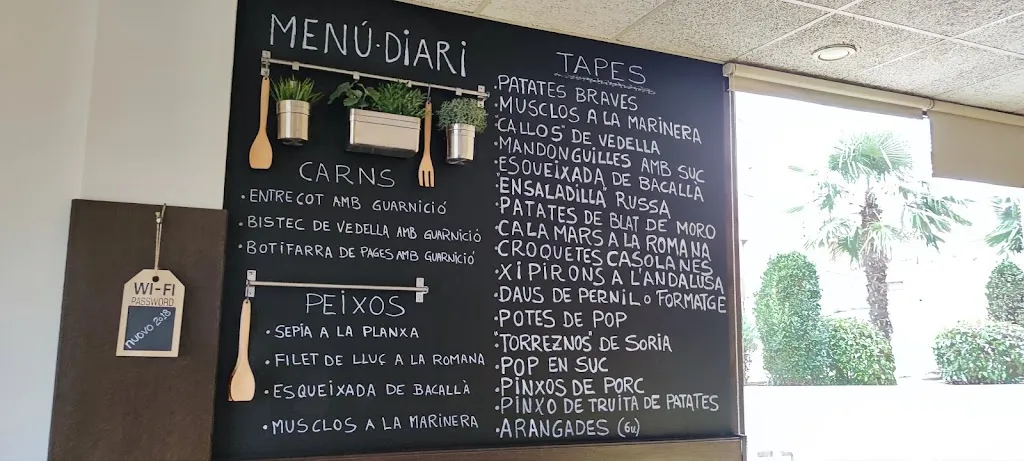 MENÚ·DIARI
CARNS
·ENTRECOT AMB GUARNICIÓ
·BISTEC DE VEDELLA AMB GUARNICIÓ
·BOTIFARRA DE PAGES AMB GUARNICIÓ
PEIXOS
·SEPIA A LA PLANXA
·FILET DE LLUÇ A LA ROMANA
·ESQUEIXADA DE BACALLÀ
·MUSCLOS A LA MARINERA
TAPES
·PATATES BRAVES
·MUSCLOS A LA MARINERA
·"CALLOS" DE VEDELLA
·MANDONGUILLES AMB SUC
·ESQUEIXADA DE BACALLÀ
·"ENSALADILLA" RUSSA
·PATATES DE BLAT DE MORO
·CALAMARS A LA ROMANA
·CROQUETES CASOLANES
·XIPIRONS A L'ANDALUSA
·DAUS DE PERNIL o FORMATGE
·POTES DE POP
·"TORREZNOS" DE SORIA
·POP EN SUC
·PINXOS DE PORC
·PINXO DE TRUITA DE PATATES
·ARANGADES (6u)
WI-FI
PASSWORD
nuovo 2018